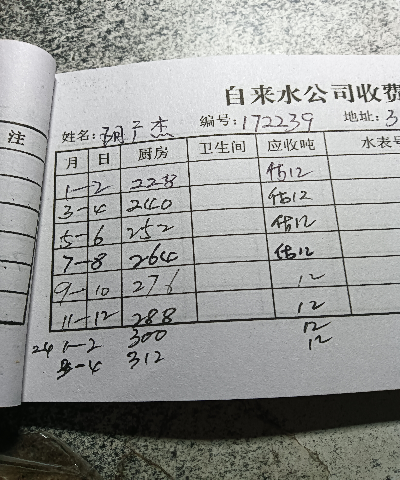 自来水公司收费
注
姓名: 广杰 编号: 172239 地址: 3
月 日 厨房 卫生间 应收吨 水表
1-2 228 估12
3-4 240 估12
5-6 252 估12
7-8 264 估12
9-10 276 12
11-12 288 12
24 1-2 300 12
3-4 312 12